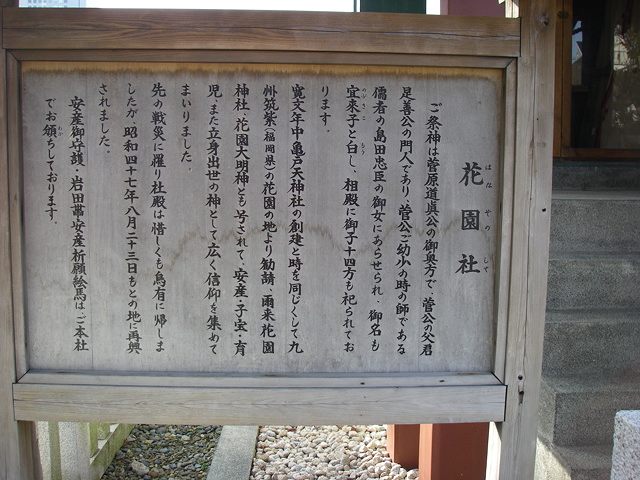 花園社
はな
やの
して
ご祭神は菅原道眞公の御奥方で、菅公の父君
足善公の門人であり、菅公ご幼小の時の師である
儒者の島田忠臣の御女にあらせられ、御名も
宣来子と白し、相殿に御子十四方も祀られてお
ります。
寛文年中亀戸天神社の創建と時を同じくして九
州筑紫(福岡県)の花園の地より勧請、爾来花園
神社、花園大明神とも号されて、安産・子宝・育
児、また立身出世の神として広く信仰を集めて
まいりました。
先の戦災に罹り社殿は惜しくも烏有に帰しま
したが、昭和四十七年八月二十三日もとの地に再興
されました。
安産御守護・岩田帯安産祈願絵馬は、ご本社
でお頒ちしております。